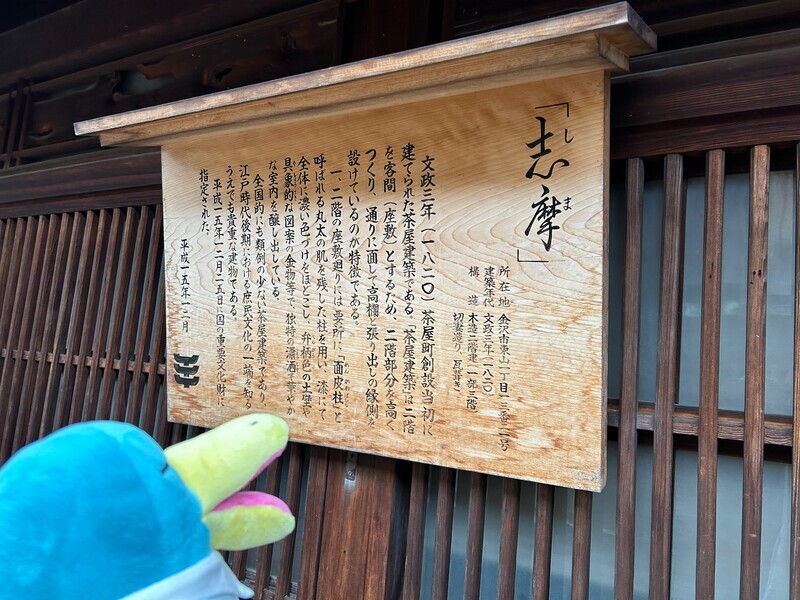 「志摩」
しま
所在地 金沢市東山一丁目一三番二一号
建築年代 文政三年(一八二〇)
構造 木造二階建、一部三階
切妻造り、瓦葺き
文政三年(一八二〇)茶屋町創設当初に
建てられた茶屋建築である。「茶屋建築」は二階
を客間(座敷)とするため、二階部分を高く
つくり、通りに面して高欄と張り出しの縁側を
設けているのが特徴である。
一、二階の座敷廻りには要所に「面皮柱」と
めんかわ
呼ばれる丸太の肌を残した柱を用い、漆にて
全体に濃い色づけをほどこし、弁柄色の土壁や
具象的な図案の金物等で、独特の瀟洒で華やか
な室内を醸し出している。
全国的にも類例の少ない茶屋建築であり、
江戸時代後期における庶民文化の一端を知る
うえでも貴重な建物である。
平成一五年一二月二五日に国の重要文化財に
指定された。
平成一五年一二月